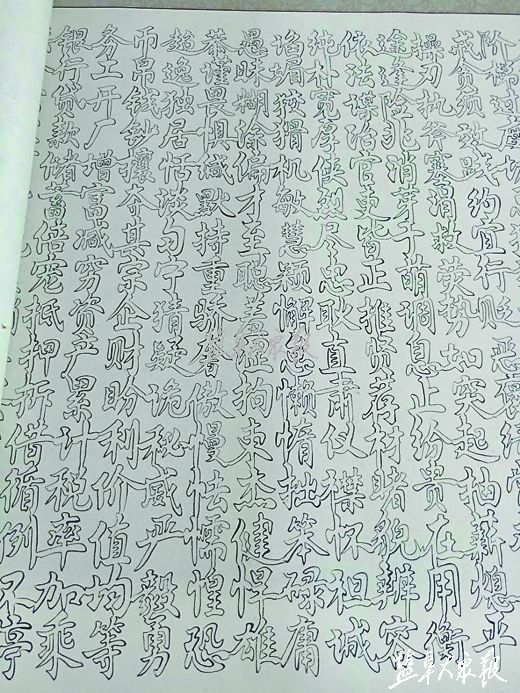 阶祸过度
戒贪须效践约宜行则恶
操刃执斧塞涓救荧势如突起抽薪熄平
途逢险兆消芽于萌调息止纷贵在用衡
依法谋治官吏皆正推贤荐材睹貌辨容
纯朴宽厚侠烈尽忠耿直肃仪襟怀袒诚
谄媚狡猾机敏慧颖懈怠懒惰拙笨碌庸
愚昧糊涂偏才至聪羞涩拘束杰健悍雄
恭谨畏惧缄默持重骄奢傲慢怯懦惶恐
超逸独居恬淡匀宁猜疑诡秘威严毅勇
币帛钱钞攘夺其宗企财盼利价值均等
务工开厂增富减穷资产累计税率加乘
银行贷款储蓄信宠抵押折借循例不亭
盐阜大众报